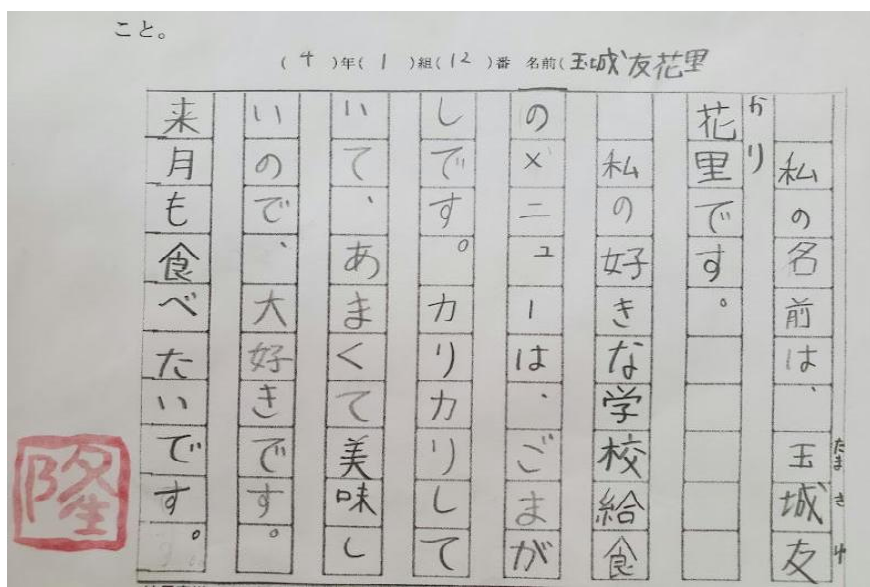 こと。
(4)年(1)組(12)番 名前(玉城友花里
私の名前は、玉城友
たまきゆ
花里です。
かり
私の好きな学校給食
のメニューは、ごまが
しです。カリカリして
いて、あまくて美味し
いので、大好きです。
来月も食べたいです。
隆